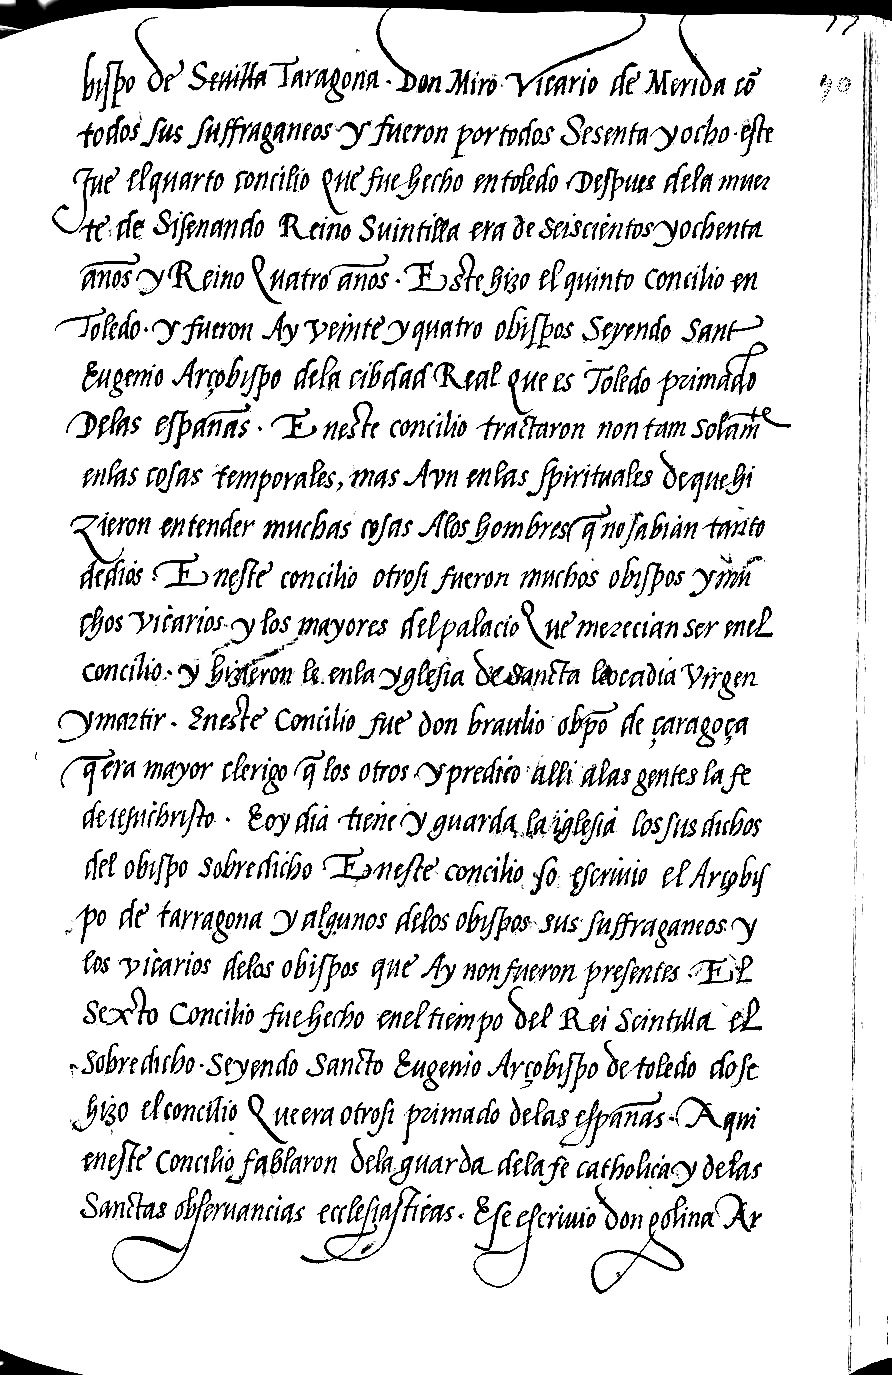 77
90
bispo de Seuilla Taragona. Don Miro Vicario de Merida cō
todos sus suffraganeos y fueron por todos Sesenta y ocho. este
Fue el quarto concilio Que fue hecho en toledo Despues dela muer
te de Sisenando Reino Suintilla era de seiscientos y ochenta
años y Reino Quatro años. Este hizo el quinto concilio en
Toledo. y fueron Ay veinte y quatro obispos Seyendo Sant
Eugenio Arçobispo dela cibdad Real que es Toledo primado
Delas españas. Eneste concilio tractaron non tam solamte
enlas cosas temporales, mas Avn enlas spirituales de que hi
zieron entender muchas cosas Alos hombres q̄ no sabian tanto
de dios. Eneste concilio otrosi fueron muchos obispos y mu
chos vicarios y los mayores del palacio Que merecian ser enel
concilio. y hizieron le enla yglesia de sancta leocadia Virgen
y martir. Eneste Concilio fue don braulio obpō de çaragoça
q̄ era mayor clerigo q̄ los otros y predico alli alas gentes la fe
de iesuchristo. Eoy dia tiene y guarda la iglesia los sus dichos
del obispo sobredicho Eneste concilio so escriuio el Arçobis
po de tarragona y algunos delos obispos sus suffraganeos y
los vicarios delos obispos que Ay non fueron presentes. El
Sexto Concilio fue hecho enel tiempo del Rei Scintilla el
sobredicho. Seyendo Sancto Eugenio Arçobispo de toledo dose
hizo el concilio Que era otrosi primado delas españas. Aqui
eneste Concilio fablaron dela guarda dela fe catholica y delas
Sanctas obseruancias ecclesiasticas. Ese escriuio don golina Ar